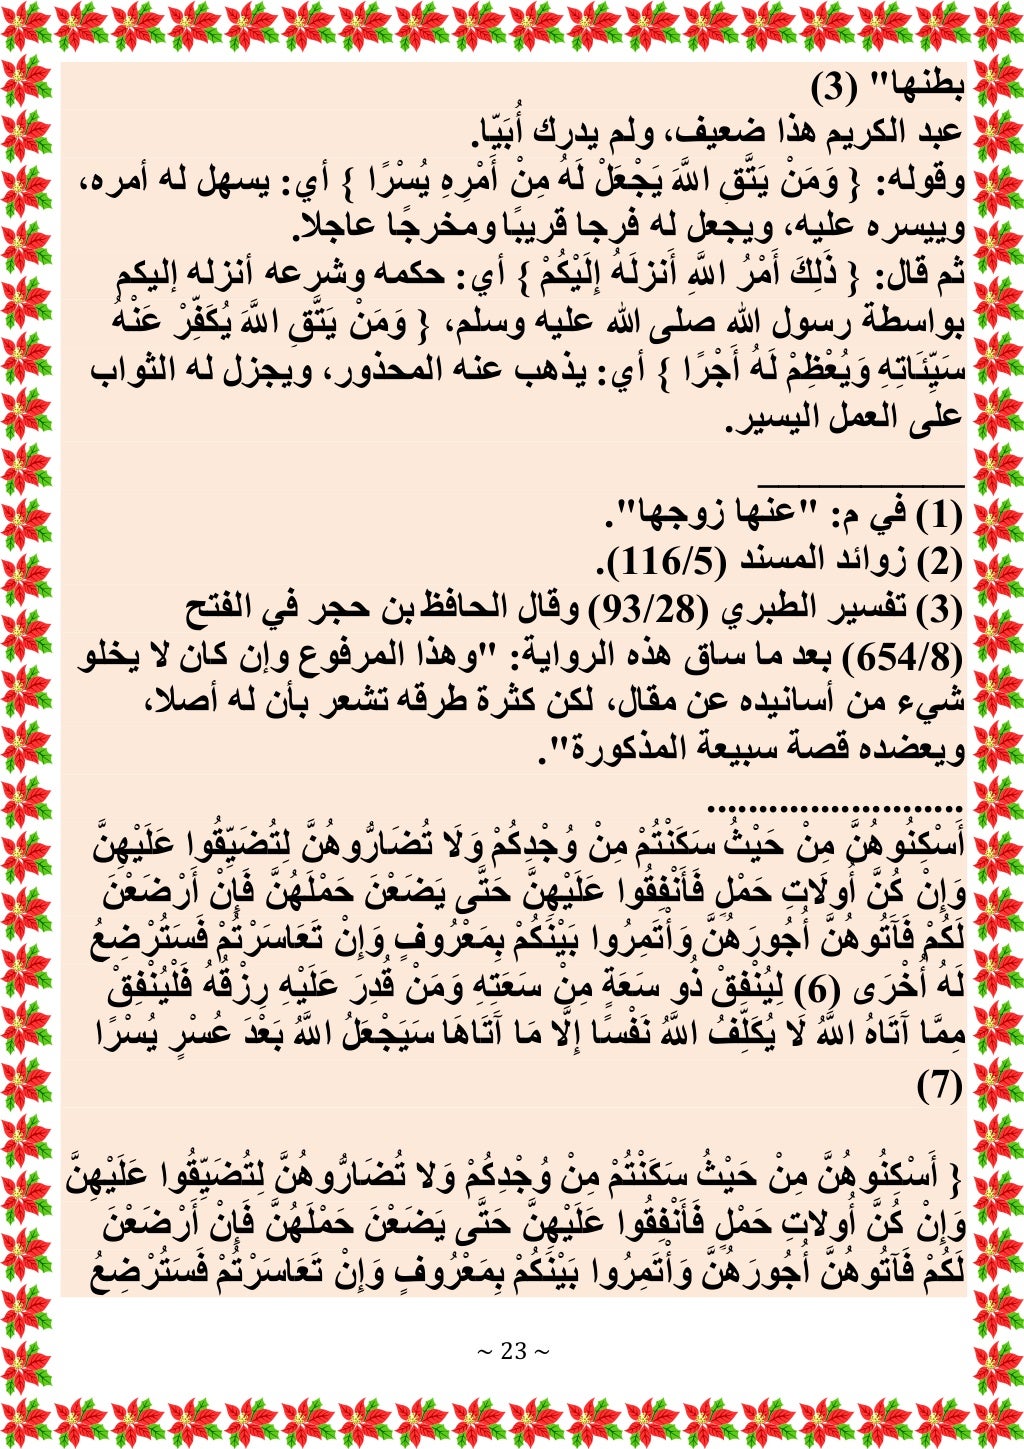 بطنها" (3)
عبد الكريم هذا ضعيف، ولم يدرك أُبَيّا.
وقوله: { وَمَنْ يَتَّقِ اللَّهَ يَجْعَلْ لَهُ مِنْ أَمْرِهِ يُسْرًا } أي: يسهل له أمره،
وييسره عليه، ويجعل له فرجا قريبًا ومخرجًا عاجلا.
ثم قال: { ذَلِكَ أَمْرُ اللَّهِ أَنزلَهُ إِلَيْكُمْ } أي: حكمه وشرعه أنزله إليكم
بواسطة رسول الله صلى الله عليه وسلم، { وَمَنْ يَتَّقِ اللَّهَ يُكَفِّرْ عَنْهُ
سَيِّئَاتِهِ وَيُعْظِمْ لَهُ أَجْرًا } أي: يذهب عنه المحذور، ويجزل له الثواب
على العمل اليسير.
__________
(1) في م: "عنها زوجها".
(2) زوائد المسند (116/5).
(3) تفسير الطبري (93/28) وقال الحافظ بن حجر في الفتح
(654/8) بعد ما ساق هذه الرواية: "وهذا المرفوع وإن كان لا يخلو
شيء من أسانيده عن مقال، لكن كثرة طرقه تشعر بأن له أصلا،
ويعضده قصة سبيعة المذكورة".
.........................
أَسْكِنُوهُنَّ مِنْ حَيْثُ سَكَنْتُمْ مِنْ وُجْدِكُمْ وَلَا تُضَارُّوهُنَّ لِتُضَيِّقُوا عَلَيْهِنَّ
وَإِنْ كُنَّ أُولَاتِ حَمْلٍ فَأَنْفِقُوا عَلَيْهِنَّ حَتَّى يَضَعْنَ حَمْلَهُنَّ فَإِنْ أَرْضَعْنَ
لَكُمْ فَآَتُوهُنَّ أُجُورَهُنَّ وَأْتَمِرُوا بَيْنَكُمْ بِمَعْرُوفٍ وَإِنْ تَعَاسَرْتُمْ فَسَتُرْضِعُ
لَهُ أُخْرَى (6) لِيُنْفِقْ ذُو سَعَةٍ مِنْ سَعَتِهِ وَمَنْ قُدِرَ عَلَيْهِ رِزْقُهُ فَلْيُنْفِقْ
مِمَّا آَتَاهُ اللَّهُ لَا يُكَلِّفُ اللَّهُ نَفْسًا إِلَّا مَا آَتَاهَا سَيَجْعَلُ اللَّهُ بَعْدَ عُسْرٍ يُسْرًا
(7)
{ أَسْكِنُوهُنَّ مِنْ حَيْثُ سَكَنْتُمْ مِنْ وُجْدِكُمْ وَلا تُضَارُّوهُنَّ لِتُضَيِّقُوا عَلَيْهِنَّ
وَإِنْ كُنَّ أُولاتِ حَمْلٍ فَأَنْفِقُوا عَلَيْهِنَّ حَتَّى يَضَعْنَ حَمْلَهُنَّ فَإِنْ أَرْضَعْنَ
لَكُمْ فَآتُوهُنَّ أُجُورَهُنَّ وَأْتَمِرُوا بَيْنَكُمْ بِمَعْرُوفٍ وَإِنْ تَعَاسَرْتُمْ فَسَتُرْضِعُ
~ 23 ~